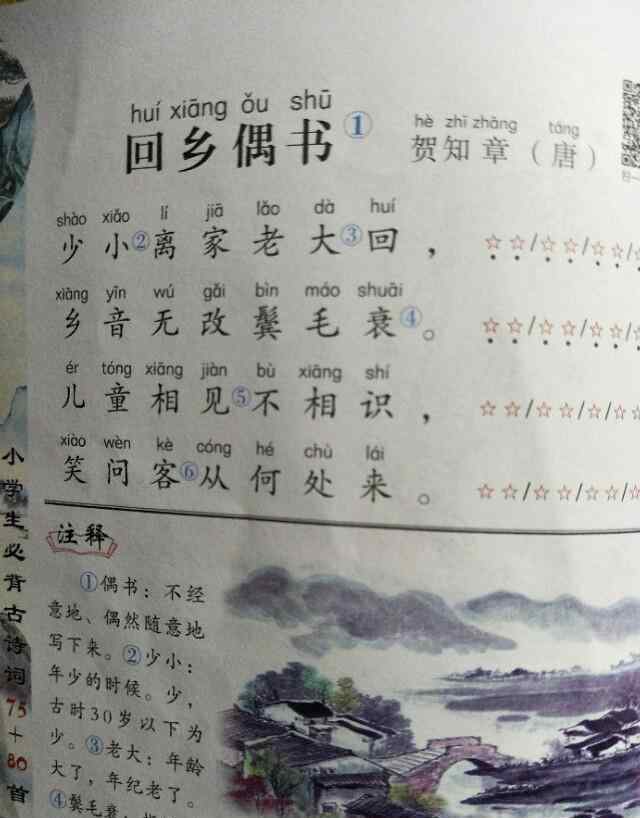 huí xiāng ǒu shū
回乡偶书①
hè zhī zhāng táng
贺知章（唐）
shào xiǎo lí jiā lǎo dà huí
少小②离家老大③回，
xiàng yīn wú gǎi bìn máo shuāi
乡音无改鬓毛衰④。
ér tóng xiāng jiàn bù xiāng shí
儿童相见⑤不相识，
xiào wèn kè cóng hé chù lái
笑问客⑥从何处来。
注释
①偶书：不经
意地、偶然随意地
写下来。②少小：
年少的时候。少，
古时30岁以下为
少。③老大：年龄
大了，年纪老了。
④鬓毛衰：
小学生必背古诗词75+80首